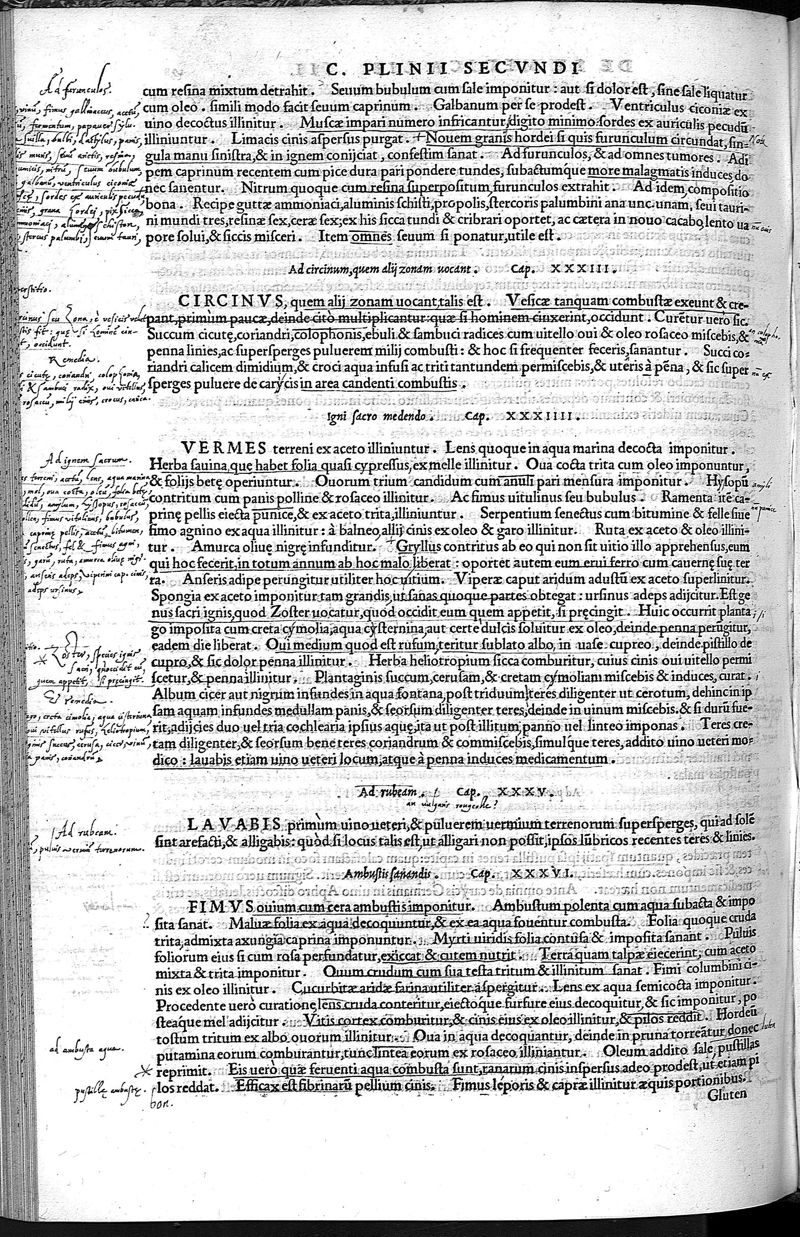 C. PLINII SECVNDI
cum resina mixtum detrahit. Seuum bubulum cum sale imponitur: aut si dolor est, sine sale liquatur
cum oleo. simili modo facit seuum caprinum. Galbanum per se prodest. Ventriculus ciconiæ ex
uino decoctus illinitur. Muscæ impari numero infricantur, digito minimo. sordes ex auriculis pecudū
illiniuntur. Limacis cinis aspersus purgat. Nouem granis hordei si quis furunculum circundat, sin-
gula manu sinistra, & in ignem conijciat, confestim sanat. Ad furunculos, & ad omnes tumores. Adi
pem caprinum recentem cum pice dura pari pondere tundes, subactumque more malagmatis induces do
nec sanentur. Nitrum quoque cum resina superpositum, furunculos extrahit. Ad idem, compositio
bona. Recipe guttæ ammoniaci, aluminis schisti, propolis, stercoris palumbini ana unc. unam, seui tauri-
ni mundi tres, resinæ sex, ceræ sex; ex his sicca tundi & cribrari oportet, ac cætera in nouo cacabo, lento ua
pore solui, & siccis misceri. Item omnes seuum si ponatur, utile est.
Ad circinum, quem alij zonam uocant. Cap. XXXIII.
CIRCINVS, quem alij zonam uocant, talis est. Vesicæ tanquam combustæ exeunt & cre-
pant, primùm paucæ, deinde citò multiplicantur: quæ si hominem cinxerint, occidunt. Curētur uerò sic.
Succum cicutę, coriandri, colophonis, ebuli & sambuci radices cum uitello oui & oleo rosaceo miscebis, &
penna linies, ac supersperges puluerem milij combusti: & hoc si frequenter feceris, sanantur. Succi co-
riandri calicem dimidium, & croci aqua infusi ac triti tantundem permiscebis, & uteris à pēna, & sic super
sperges puluere de carycis in area candenti combustis.
Igni sacro medendo. Cap. XXXIIII.
VERMES terreni ex aceto illiniuntur. Lens quoque in aqua marina decocta imponitur.
Herba sauina, quę habet folia quasi cypressus, ex melle illinitur. Oua cocta trita cum oleo imponuntur,
& folijs betę operiuntur. Ouorum trium candidum cum anuli pari mensura imponitur. Hysopū
contritum cum panis polline & rosaceo illinitur. Ac fimus uitulinus seu bubulus. Ramenta itē ca-
prinę pellis eiecta punice, & ex aceto trita, illiniuntur. Serpentium senectus cum bitumine & felle siue
fimo agnino ex aqua illinitur: à balneo, allij cinis ex oleo & garo illinitur. Ruta ex aceto & oleo illini-
tur. Amurca oliuę nigrę infunditur. Gryllus contritus ab eo qui non sit uitio illo apprehensus, eum
qui hoc fecerit, in totum annum ab hoc malo liberat: oportet autem eum erui ferro cum cauernę suę ter
ra. Anseris adipe perungitur utiliter hoc uitium. Viperæ caput aridum adustū ex aceto superlinitur.
Spongia ex aceto imponitur tam grandis, ut sanas quoque partes obtegat: ursinus adeps adijcitur. Est ge
nus sacri ignis, quod Zoster uocatur, quod occidit eum quem appetit, si pręcingit. Huic occurrit planta
go imposita cum creta cymolia, aqua cysternina, aut certe dulcis soluitur ex oleo, deinde penna perūgitur,
eadem die liberat. Oui medium quod est rufum, teritur sublato albo, in uase cupreo, deinde pistillo de
cupro, & sic dolor penna illinitur. Herba heliotropium sicca comburitur, cuius cinis oui uitello permi
scetur, & penna illinitur. Plantaginis succum, cerusam, & cretam cymoliam miscebis & induces, curat.
Album cicer aut nigrum infundes in aqua fontana, post triduum teres diligenter ut cerotum, dehinc in ip
sam aquam infundes medullam panis, & seorsum diligenter teres, deinde in uinum miscebis. & si durū fue-
rit, adijcies duo uel tria cochlearia ipsius aquę, ita ut post illitum, panno uel linteo imponas. Teres cre-
tam diligenter, & seorsum bene teres coriandrum & commiscebis, simulque teres, addito uino ueteri mo-
dico: lauabis etiam uino ueteri locum, atque à penna induces medicamentum.
Ad rubeam. Cap. XXXV.
an vulgaris rougeolle?
LAVABIS primùm uino ueteri, & puluerem uermium terrenorum supersperges, qui ad solē
sint arefacti, & alligabis: quòd si locus talis est, ut alligari non possit, ipsos lubricos recentes teres & linies.
Ambustis sanandis. Cap. XXXVI.
FIMVS ouium cum cera ambustis imponitur. Ambustum polenta cum aqua subacta & impo
sita sanat. Maluæ folia ex aqua decoquiuntur, & ex ea aqua fouentur combusta. Folia quoque cruda
trita, admixta axungia caprina imponuntur. Myrti uiridis folia contusa & imposita sanant. Puluis
foliorum eius si cum rosa perfundatur, exiccat & cutem nutrit. Terra quam talpæ eiecerint, cum aceto
mixta & trita imponitur. Ouum crudum cum sua testa tritum & illinitum sanat. Fimi columbini ci-
nis ex oleo illinitur. Cucurbitæ aridæ farina utiliter aspergitur. Lens ex aqua semicocta imponitur.
Procedente uerò curatione, lens cruda conteritur, eiectoque furfure eius decoquitur, & sic imponitur, po
steaque mel adijcitur. Vitis cortex comburitur, & cinis eius ex oleo illinitur, & pilos reddit. Hordeū
tostum tritum ex albo ouorum illinitur. Oua in aqua decoquantur, deinde in pruna torreātur donec
putamina eorum comburantur, tunc lintea eorum ex rosaceo illiniantur. Oleum addito sale, pustillas
reprimit. Eis uerò quæ feruenti aqua combusta sunt, ranarum cinis inspersus adeo prodest, ut etiam pi
los reddat. Efficax est fibrinarū pellium cinis. Fimus leporis & capræ illinitur æquis portionibus.
Gluten
Ad furunculos.
Remedia.
Ad ignem sacrum.
Zoster, species ignis
sacri, quę occidit eū
quem appetit, si pręcingit.
Ad rubeam.
ad ambusta aqua.
pustillę ambustę.